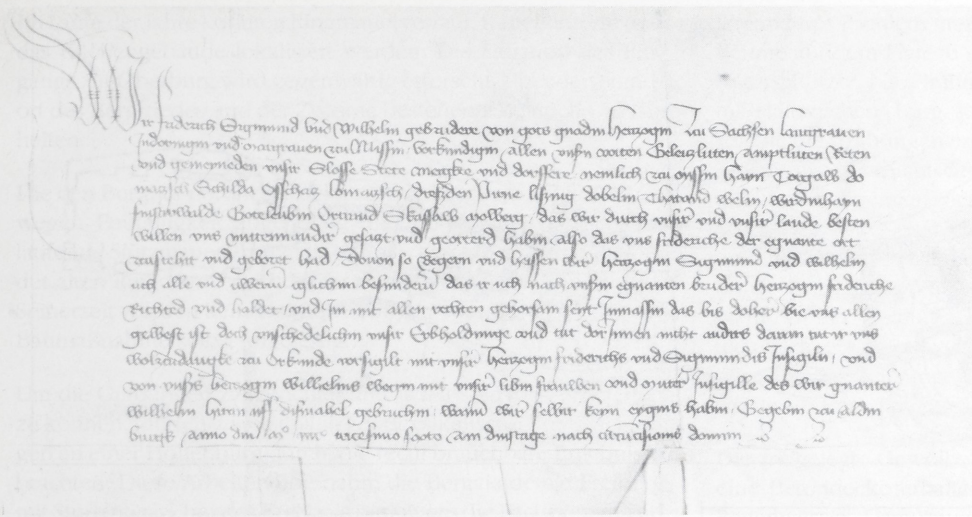 Wir friderich Sigmund vnd Wilhelm gebrudere von gots gnadin Herzogin zcu Sachsen lantgrauen
Jndoringin vnd marcgrauen zcu Missin vorkundigin allen vnsirn voiten Geleiczluten amptluten Reten
vnd gemeineden vnsir Slosse Stete mergkte vnd dorffere nemlich zcu missin hayn Torgaw do
miczsch Schilda Osschacz lomaczsch dresden Pirne lissnig dobelin Tharand welin wirdinhayn
finstirwalde Goteleubin Ortrand Skassaw molberg das wir durch vnsir vnd vnsir lande besten
willen vns mittenandir gesaczt vnd geortert habin also das vns frideriche der egnante ort
zcusteht vnd geboret had Douon so begern vnd heissen wir herzogin Sigmund vnd wilhelm
uch alle vnd uwern iglichin besundern das ir uch nach vnsirm egnanten bruder herzogin frideriche
Richted vnd halded vnd Jm mit allen rechten gehorsam sent Jnmassin das bis doher bie vns allen
gewest ist doch vnschedelichin vnsir Erbholdunge vnd tut dorJnnen nicht andirs daran tut ir vns
wolzcudangke zcu orkunde vorsigilt mit vnsir herzogin friderichs vnd Sigmundis Jnsigiln vnd
von vnsirs herzogin wilhelms wegin mit vnsir libin frauwen vnd mutir Jnsigille des wir gnanter
wilhelm hiran uff dißmael gebruchin wann wir selbir keyn eygins habin Gegebin zcu aldin
burgk anno dm mo tricesimo sexto am dinstage nach circumcisionis domini